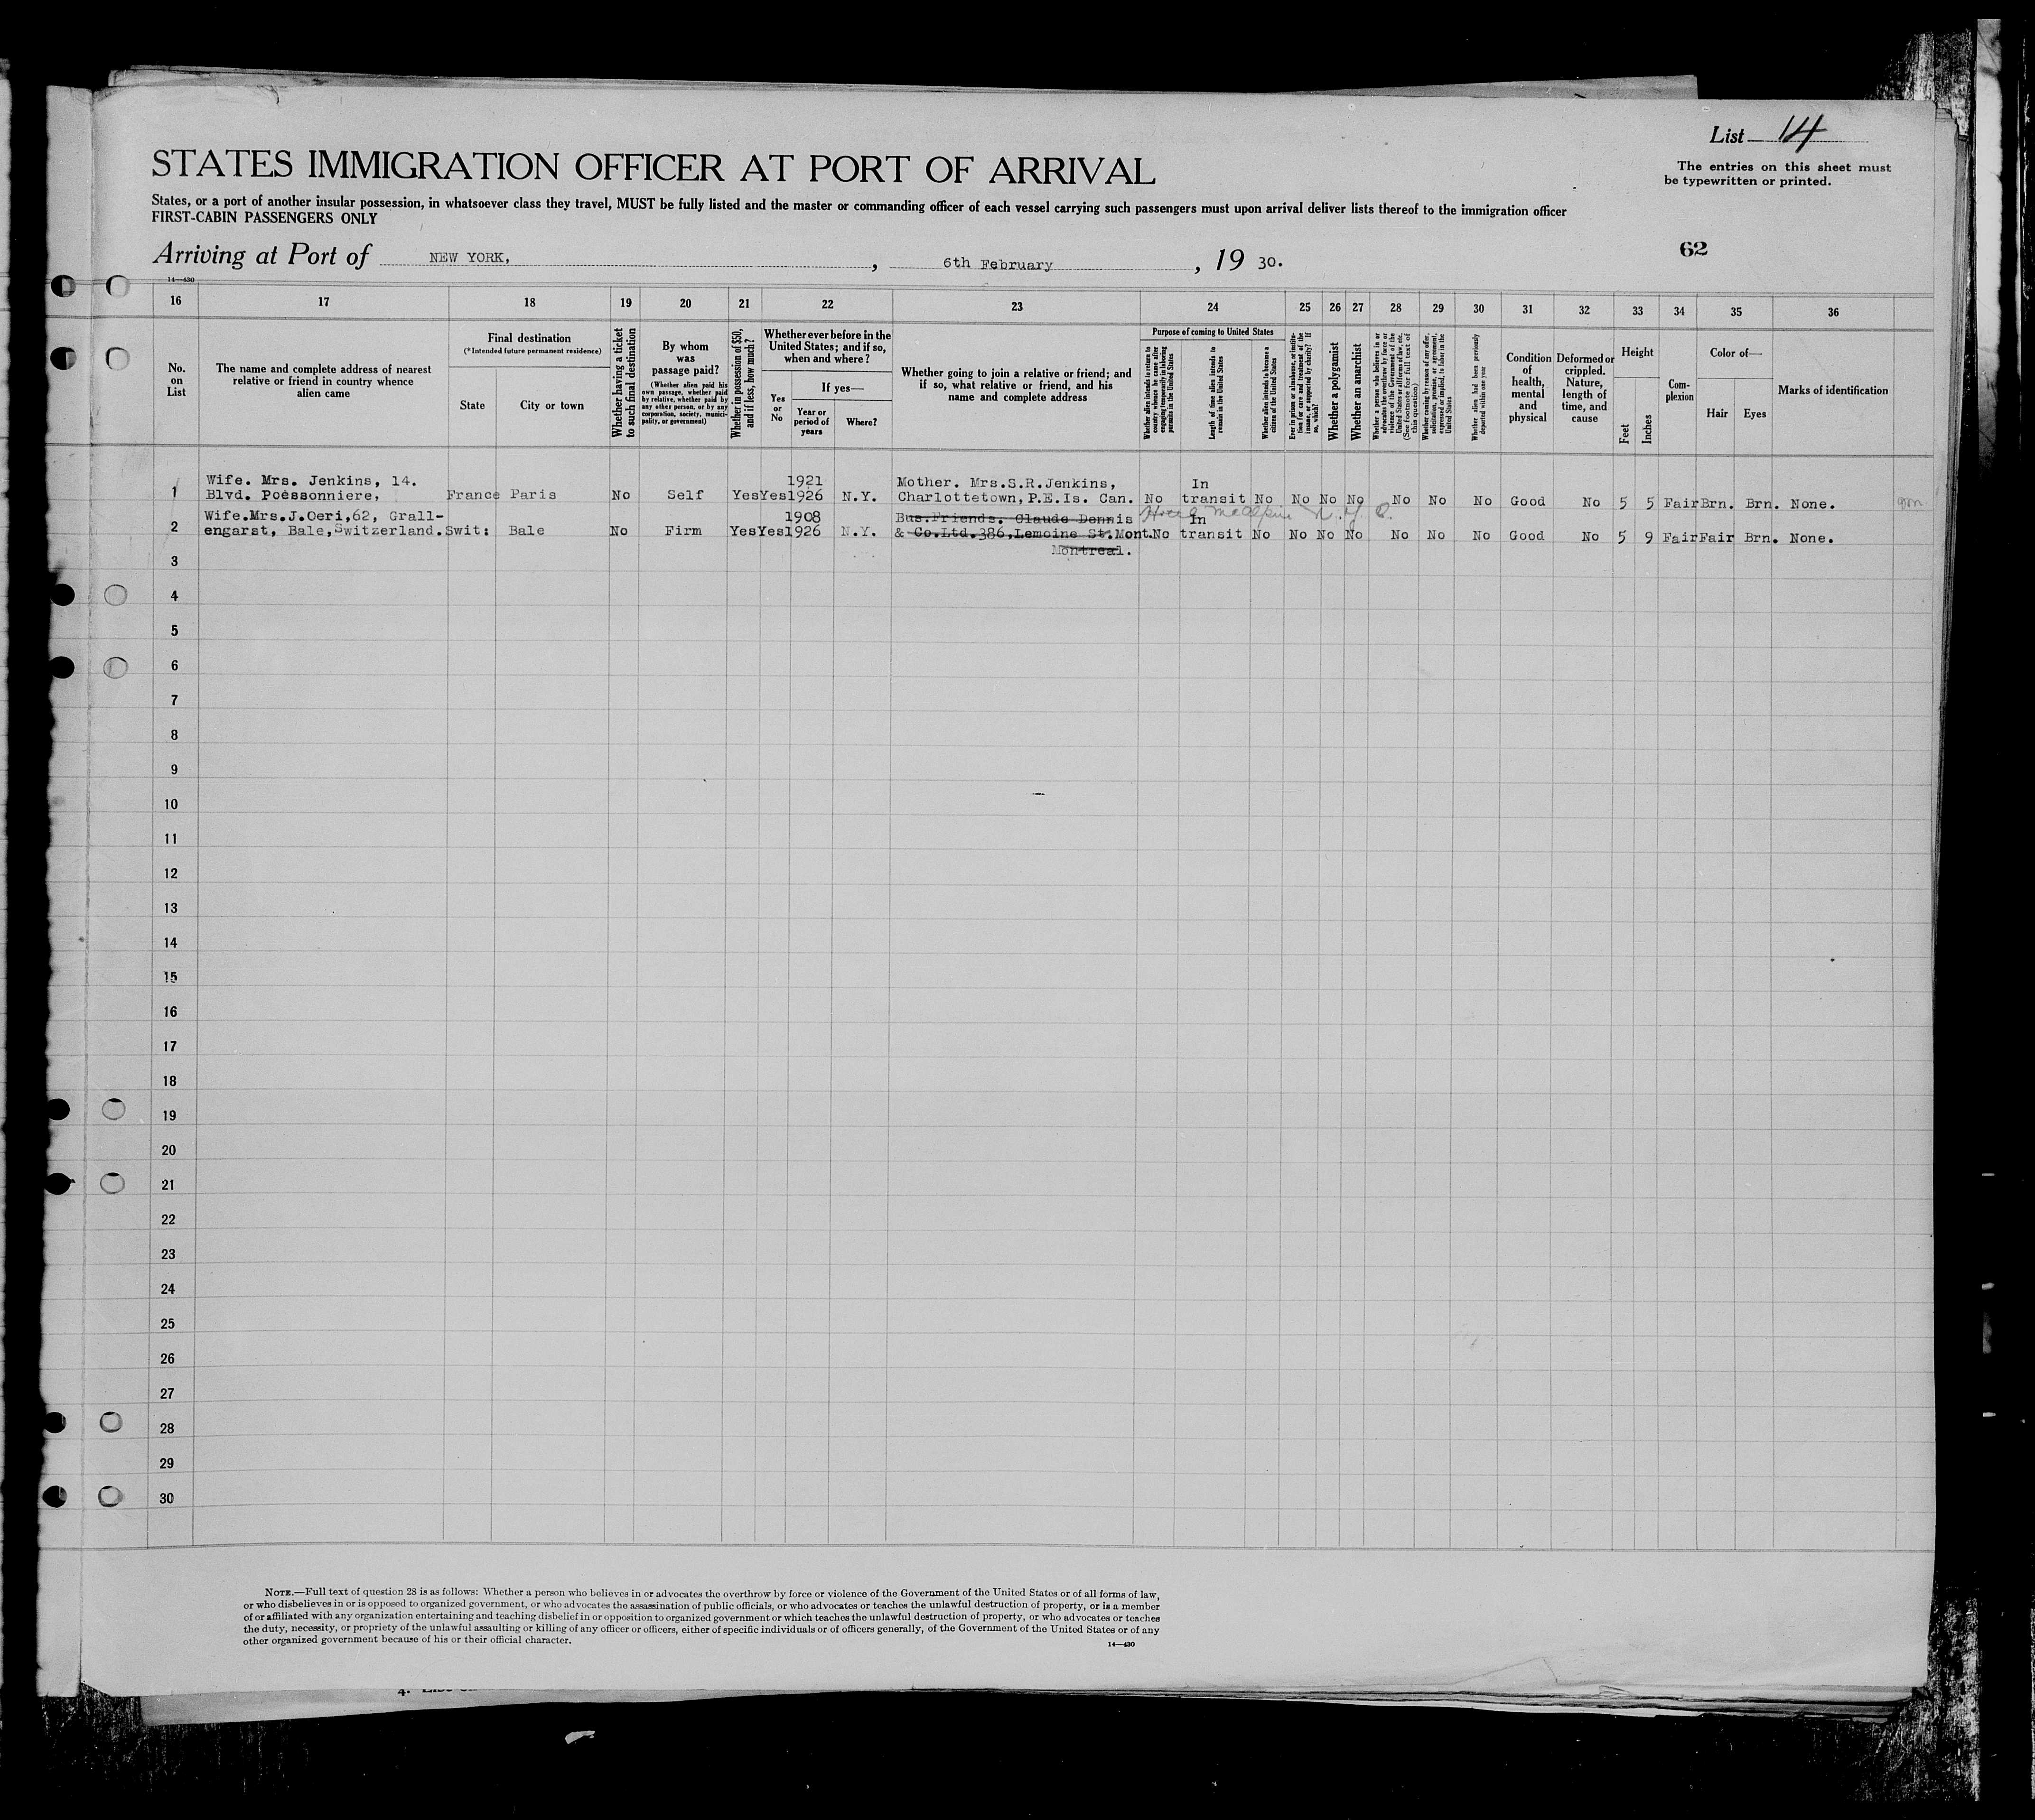 List 14
The entries on this sheet must
be typewritten or printed.
STATES IMMIGRATION OFFICER AT PORT OF ARRIVAL
States, or a port of another insular possession, in whatsoever class they travel, MUST be fully listed and the master or commanding officer of each vessel carrying such passengers must upon arrival deliver lists thereof to the immigration officer
FIRST-CABIN PASSENGERS ONLY
Arriving at Port of NEW YORK, , 6th February , 19 30.
62
14—430
16 17 18 19 20 21 22 23 24 25 26 27 28 29 30 31 32 33 34 35 36
No.
on
List
The name and complete address of nearest
relative or friend in country whence
alien came
Final destination
(*Intended future permanent residence)
State
City or town
Whether having a ticket
to such final destination
By whom
was
passage paid?
(Whether alien paid his
own passage, whether paid
by relative, whether paid by
any other person, or by any
corporation, society, munici-
pality, or government)
Whether in possession of $50,
and if less, how much?
Whether ever before in the
United States; and if so,
when and where?
Yes
or
No
If yes—
Year or
period of
years
Where?
Whether going to join a relative or friend; and
if so, what relative or friend, and his
name and complete address
Purpose of coming to United States
Whether alien intends to return to
country whence he came after
engaging temporarily in laboring
pursuits in the United States
Length of time alien intends to
remain in the United States
Whether alien intends to become a
citizen of the United States
Ever in prison or almshouse, or institu-
tion for care and treatment of the
insane, or supported by charity? If
so, which?
Whether a polygamist
Whether an anarchist
Whether a person who believes in or
advocates the overthrow by force or
violence of the Government of the
United States or all forms of law, etc.
(See footnote for full text of
this question)
Whether coming by reason of any offer,
solicitation, promise, or agreement,
expressed or implied, to labor in the
United States
Whether alien had been previously
deported within one year
Condition
of
health,
mental
and
physical
Deformed or
crippled.
Nature,
length of
time, and
cause
Height
Feet
Inches
Com-
plexion
Color of—
Hair
Eyes
Marks of identification
Wife. Mrs. Jenkins, 14. 1921 Mother. Mrs.S.R.Jenkins, In
1 Blvd. Poèssonniere, France Paris No Self Yes Yes 1926 N.Y. Charlottetown, P.E.Is. Can. No transit No No No No No No No Good No 5 5 Fair Brn. Brn. None.
Hotel McAlpin N.Y.C.
Wife.Mrs.J.Oeri,62, Grall- 1908 Bus.Friends. Claude Dennis In
2 engarst, Bale,Switzerland. Swit: Bale No Firm Yes Yes 1926 N.Y. & Co.Ltd.386,Lemoine St.Mont. No transit No No No No No No No Good No 5 9 Fair Fair Brn. None.
Montreal.
3
4
5
6
7
8
9
10
11
12
13
14
15
16
17
18
19
20
21
22
23
24
25
26
27
28
29
30
NOTE.—Full text of question 28 is as follows: Whether a person who believes in or advocates the overthrow by force or violence of the Government of the United States or of all forms of law,
or who disbelieves in or is opposed to organized government, or who advocates the assassination of public officials, or who advocates or teaches the unlawful destruction of property, or is a member
of or affiliated with any organization entertaining and teaching disbelief in or opposition to organized government or which teaches the unlawful destruction of property, or who advocates or teaches
the duty, necessity, or propriety of the unlawful assaulting or killing of any officer or officers, either of specific individuals or of officers generally, of the Government of the United States or of any
other organized government because of his or their official character.
14—430